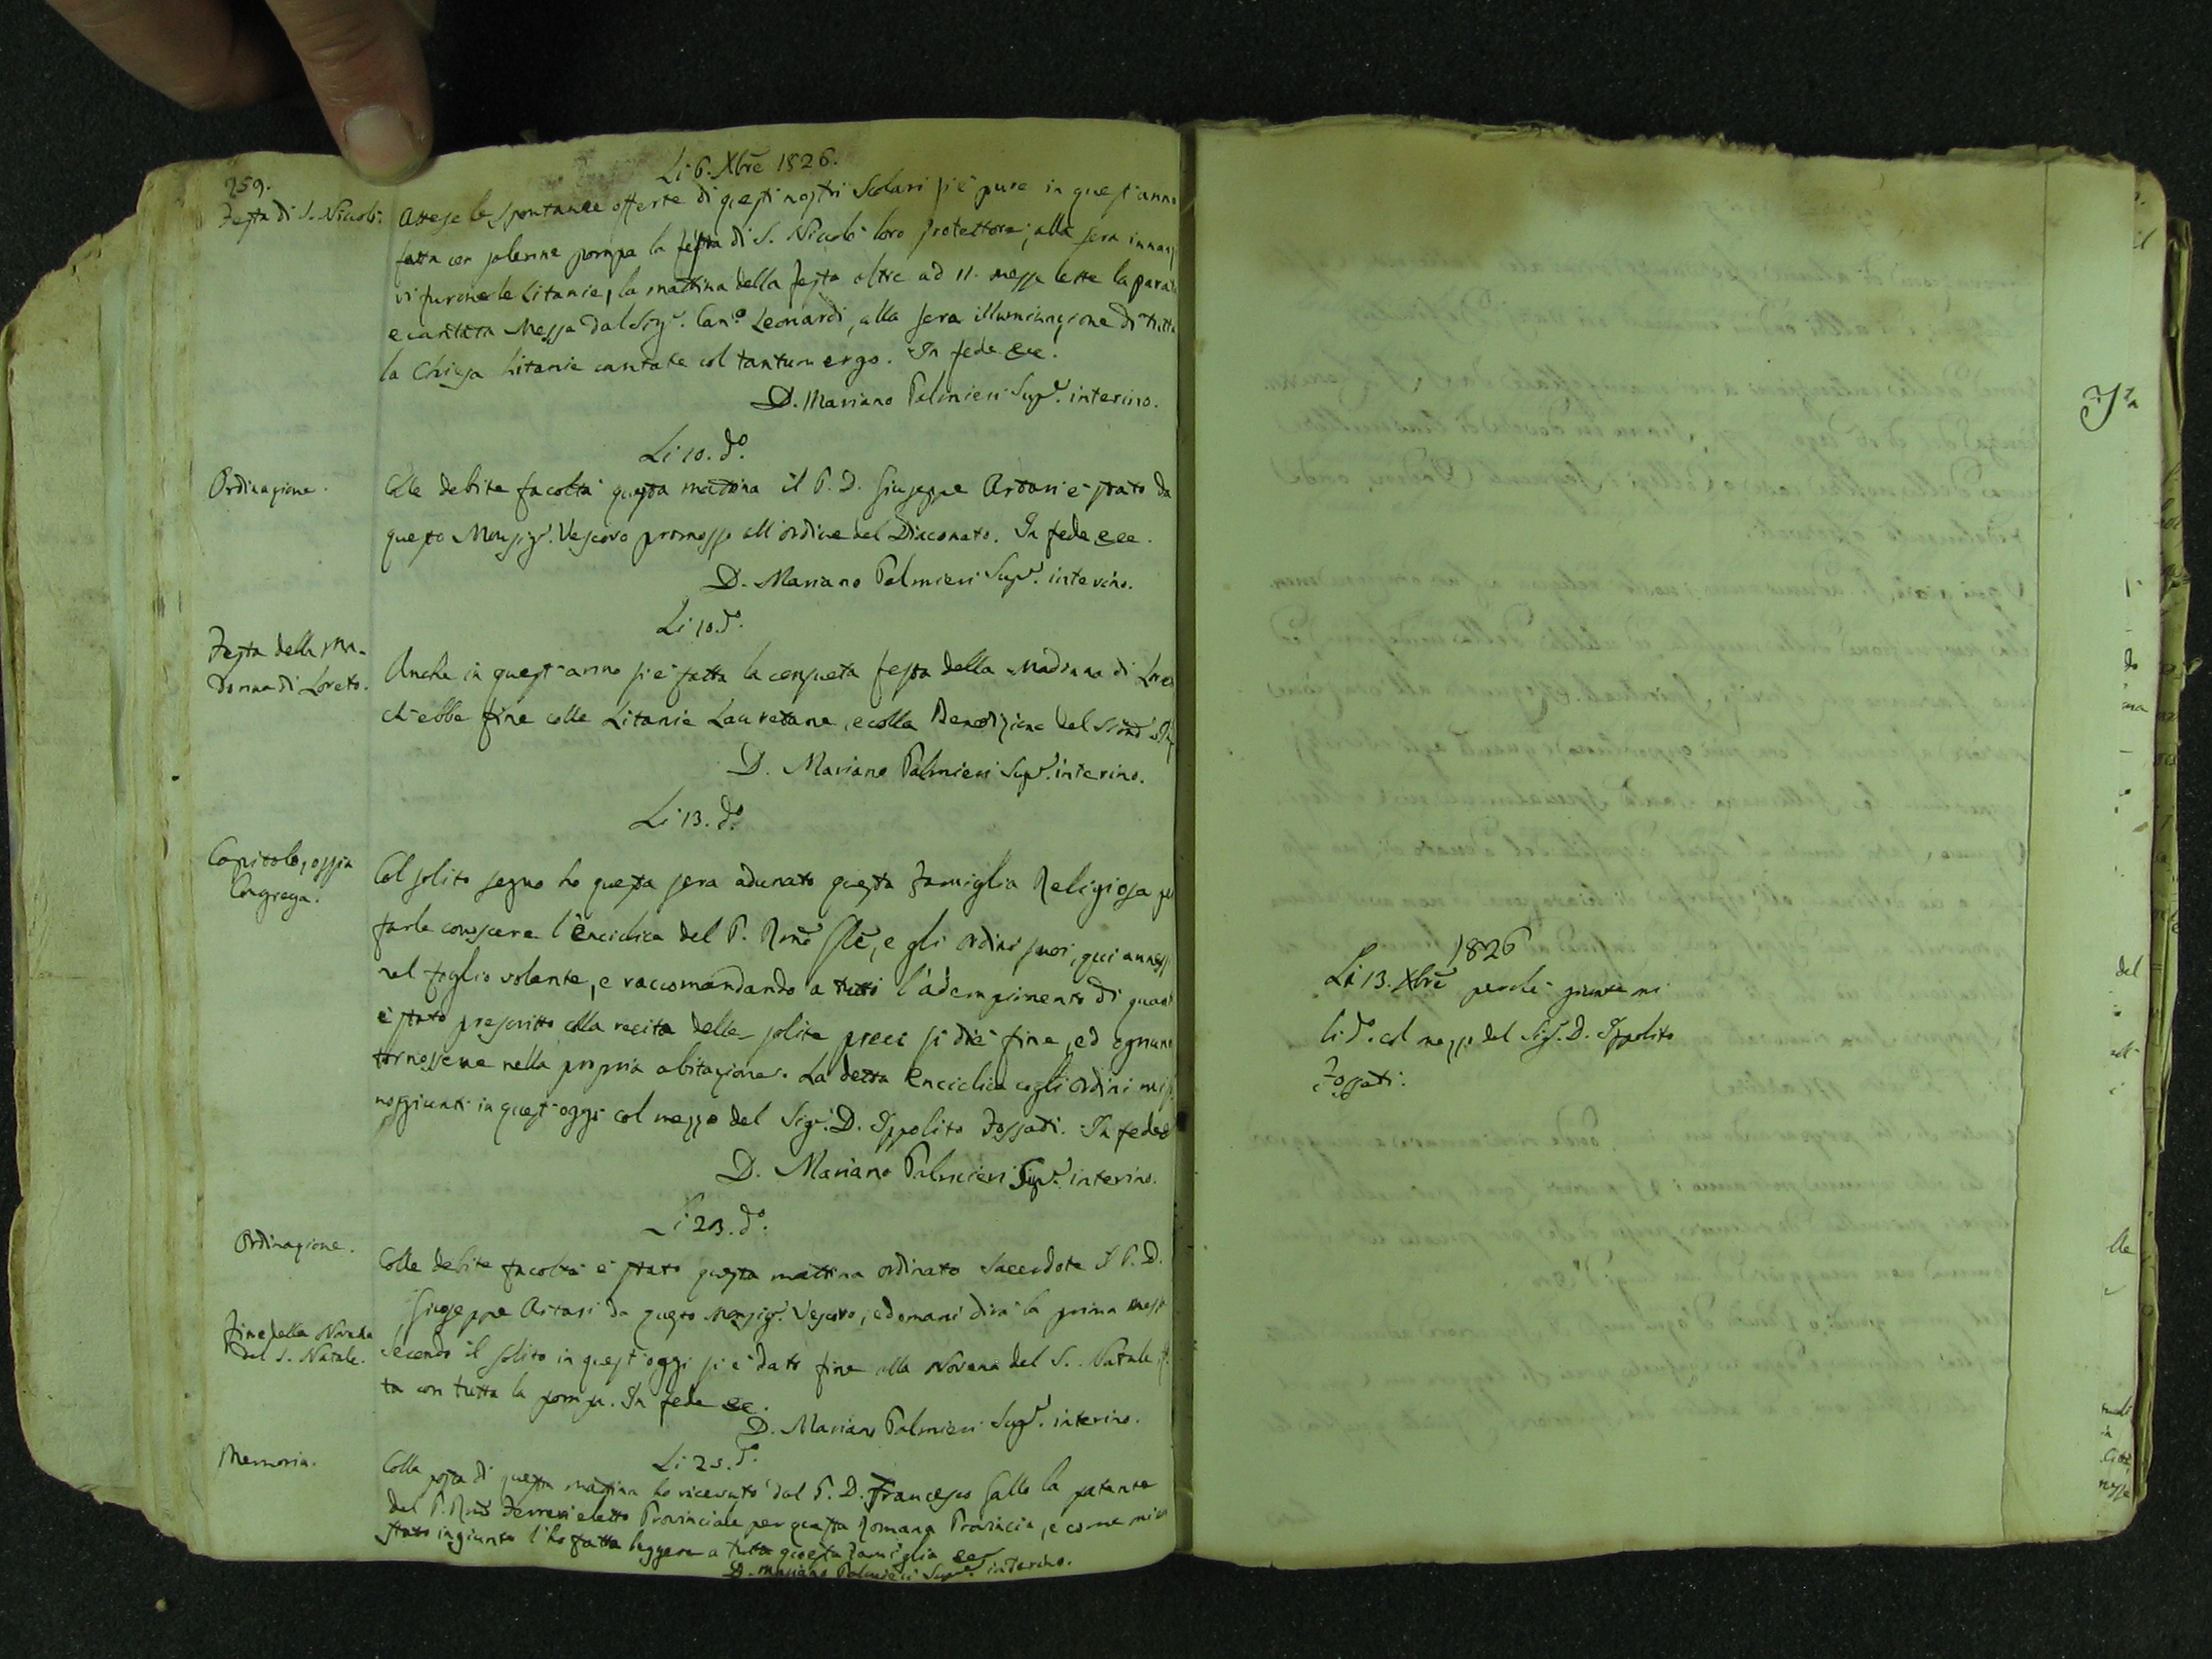 259.
Li 6. Xbre 1826.
Festa di S. Niccolò.
Attese le spontanee offerte di questi nostri Scolari si è pure in quest'anno
fatta con solenne pompa la festa di S. Niccolò loro protettore; alla sera innanzi
vi furono le Litanie, la mattina della festa oltre ad 11. messe lette la parata
e cantata Messa dal Sigr. Can.o Leonardi, alla sera illuminazione di tutta
la Chiesa Litanie cantate col tantum ergo. In fede ecc.
D. Mariano Palmieri Supr. interino.
Li 10. do.
Ordinazione.
Colle debite facoltà questa mattina il P. D. Giuseppe Artasi è stato da
questo Monsigr. Vescovo promosso all'ordine del Diaconato. In fede ecc.
D. Mariano Palmieri Supr. interino.
Li 10. do.
Festa della Ma-
donna di Loreto.
Anche in quest'anno si è fatta la consueta festa della Madonna di Loreto
ch'ebbe fine colle Litanie Lauretane, e colla Benedizione del
D. Mariano Palmieri Supr. interino.
Li 13. do.
Capitolo, ossia
Congrega.
Col solito segno ho questa sera adunato questa Famiglia Religiosa per
farle conoscere l'Enciclica del P. Rmo Gle, e gli ordini suoi, qui annessi
nel foglio volante, e raccomandando a tutti l'adempimento di quanto
è stato prescritto colla recita delle solite preci si diè fine, ed ognuno
tornossene nella propria abitazione. La detta Enciclica cogli ordini mi so-
no giunti in quest'oggi col mezzo del Sigr. D. Ippolito Fossati. In fede
D. Mariano Palmieri Supr. interino.
Li 23. do.
Ordinazione.
Colle debite facoltà è stato questa mattina ordinato Sacerdote il P. D.
Giuseppe Artasi da questo Monsigr. Vescovo, e domani dirà la prima messa
Fine della Novena
del S. Natale.
Secondo il solito in quest'oggi si è dato fine alla Novena del S. Natale fat-
ta con tutta la pompa. In fede ecc.
D. Mariano Palmieri Supr. interino.
Li 25. do.
Memoria.
Colla posta di questa mattina ho ricevuto dal P. D. Francesco Gallo la patente
del P. Rmo Ferreri eletto Provinciale per questa Romana Provincia, e come mi è
stato ingiunto l'ho fatta leggere a tutta questa famiglia ecc
D. Mariano Palmieri Supr. interino.
1826
Li 13. Xbre perchè giuntemi
li do. col mezzo del Sigr. D. Ippolito
Fossati.